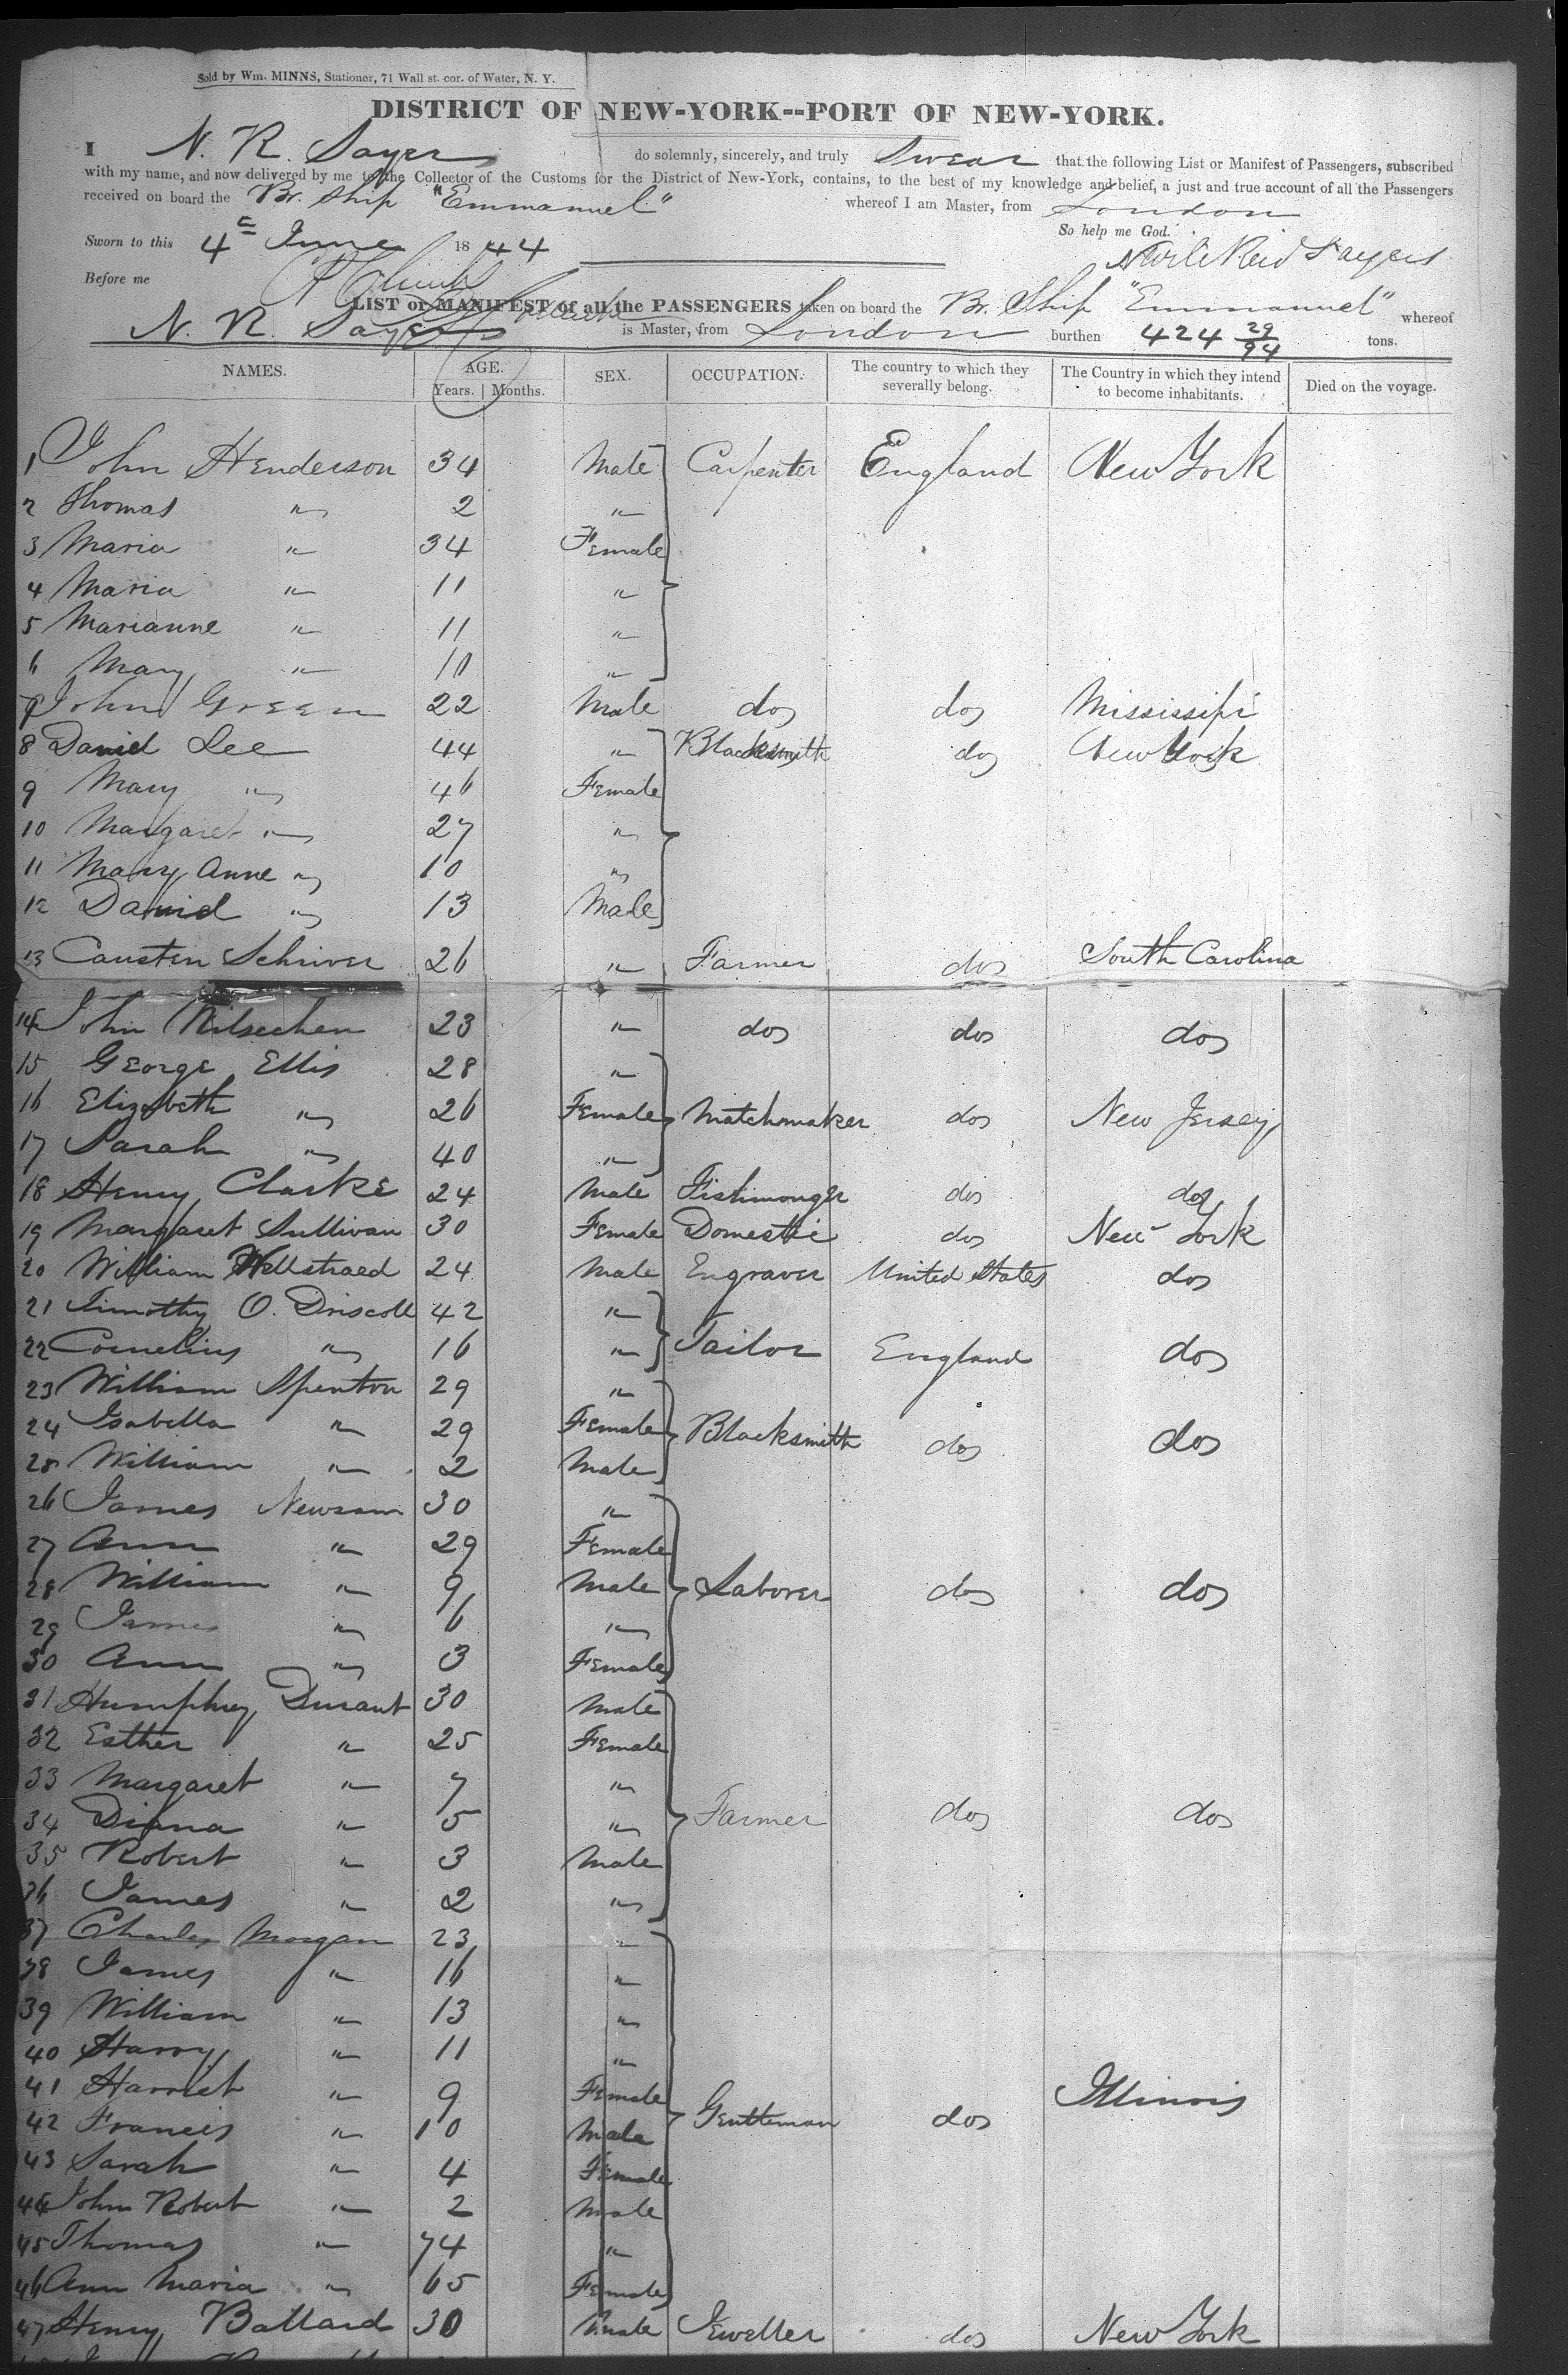 Sold by Wm. MINNS, Stationer, 71 Wall st. cor. of Water, N. Y.
DISTRICT OF NEW-YORK--PORT OF NEW-YORK.
I N. R. Sayers do solemnly, sincerely, and truly Swear that the following List or Manifest of Passengers, subscribed
with my name, and now delivered by me to the Collector of the Customs for the District of New-York, contains, to the best of my knowledge and belief, a just and true account of all the Passengers
received on board the Br. Ship "Emmanuel" whereof I am Master, from London
So help me God.
Sworn to this 4 June 1844
Before me
LIST or MANIFEST of all the PASSENGERS taken on board the Br. Ship "Emmanuel" whereof
N. R. Sayers is Master, from London burthen 424 29/94 tons.
NAMES. AGE. Years. Months. SEX. OCCUPATION. The country to which they severally belong. The Country in which they intend to become inhabitants. Died on the voyage.
1 John Henderson 34 Male Carpenter England New York
2 Thomas " 2 "
3 Maria " 34 Female
4 Maria " 11 "
5 Marianne " 11 "
6 Mary " 10 "
7 John Green 22 Male do do Mississipi
8 Daniel Lee 44 " Blacksmith do New York
9 Mary " 46 Female
10 Margaret " 27 "
11 Mary Anne " 10 "
12 Daniel " 13 Male
13 Causten Schriver 26 " Farmer do South Carolina
14 John 23 " do do do
15 George Ellis 28 "
16 Elizabeth " 26 Female Matchmaker do New Jersey
17 Sarah " 40 "
18 Henry Clarke 24 Male Fishmonger do do
19 Margaret Sullivan 30 Female Domestic do New York
20 William Wellstraed 24 Male Engraver United States do
21 Timothy O. Driscoll 42 "
22 Cornelius " 16 " Tailor England do
23 William Spenton 29 "
24 Isabella " 29 Female Blacksmith do do
25 William " 2 Male
26 James Newsam 30 "
27 Ann " 29 Female
28 William " 9 Male Laborer do do
29 James " 6 "
30 Ann " 3 Female
31 Humphrey Durant 30 Male
32 Esther " 25 Female
33 Margaret " 7 "
34 Diana " 5 " Farmer do do
35 Robert " 3 Male
36 James " 2 "
37 Charles Morgan 23 "
38 James " 16 "
39 William " 13 "
40 Harry " 11 "
41 Harriet " 9 Female Gentleman do Illinois
42 Francis " 10 Male
43 Sarah " 4 Female
44 John Robert " 2 Male
45 Thomas " 74 "
46 Ann Maria " 65 Female
47 Henry Ballard 30 Male Jeweller do New York